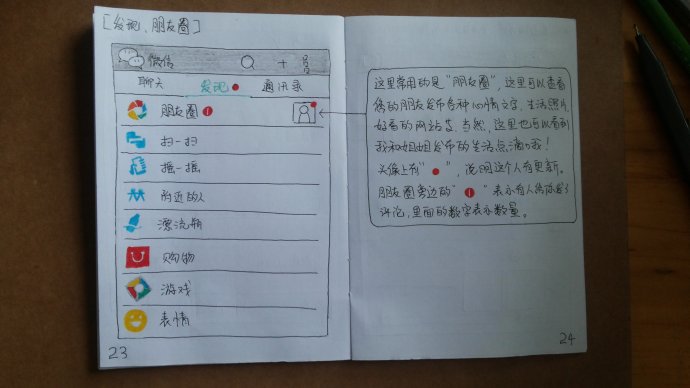 [发现、朋友圈]
微信
聊天 发现 通讯录
朋友圈 1
扫一扫
摇一摇
附近的人
漂流瓶
购物
游戏
表情
23
这里常用的是“朋友圈”，这里可以查看
你的朋友发布各种心情文字，生活照片
好看的网站等，当然，这里也可以看到
我和姐姐发布的生活点滴哦！
头像上有“ ”，说明这个人有更新。
朋友圈旁边的“1”表示有人给你发了
评论，里面的数字表示数量。
24